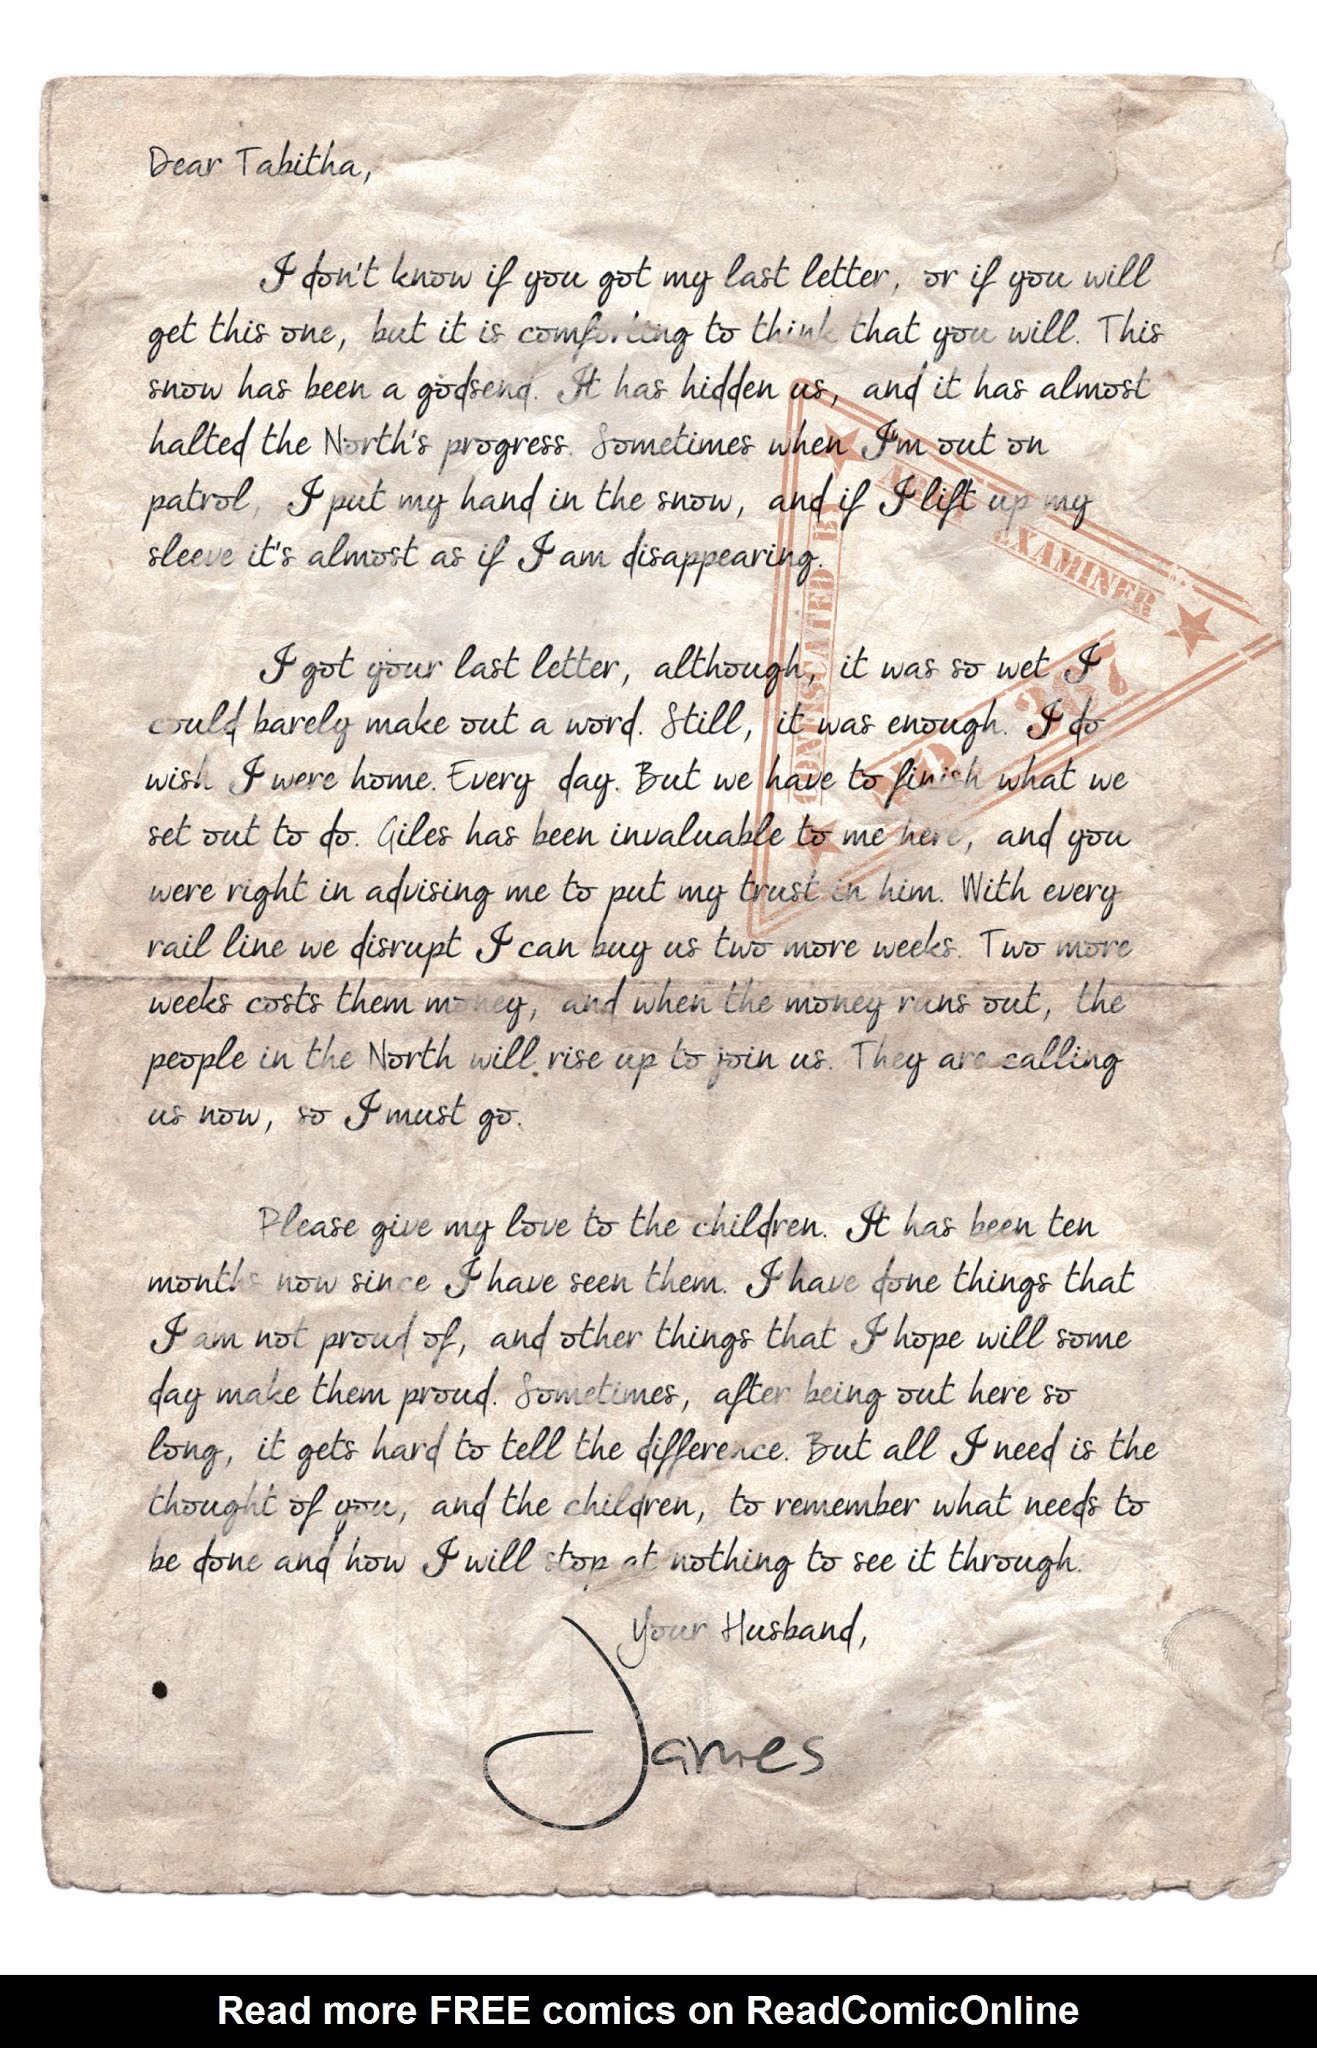 Dear Tabitha,
I don't know if you got my last letter, or if you will
get this one, but it is comforting to think that you will. This
snow has been a godsend. It has hidden us, and it has almost
halted the North's progress. Sometimes when I'm out on
patrol, I put my hand in the snow, and if I lift up my
sleeve it's almost as if I am disappearing.
I got your last letter, although, it was so wet I
could barely make out a word. Still, it was enough. I do
wish I were home. Every day. But we have to finish what we
set out to do. Giles has been invaluable to me here, and you
were right in advising me to put my trust in him. With every
rail line we disrupt I can buy us two more weeks. Two more
weeks costs them money, and when the money runs out, the
people in the North will rise up to join us. They are calling
us now, so I must go.
Please give my love to the children. It has been ten
months now since I have seen them. I have done things that
I am not proud of, and other things that I hope will some
day make them proud. Sometimes, after being out here so
long, it gets hard to tell the difference. But all I need is the
thought of you, and the children, to remember what needs to
be done and how I will stop at nothing to see it through.
Your Husband,
James
CONFISCATED BY
EXAMINER
287
Read more FREE comics on ReadComicOnline